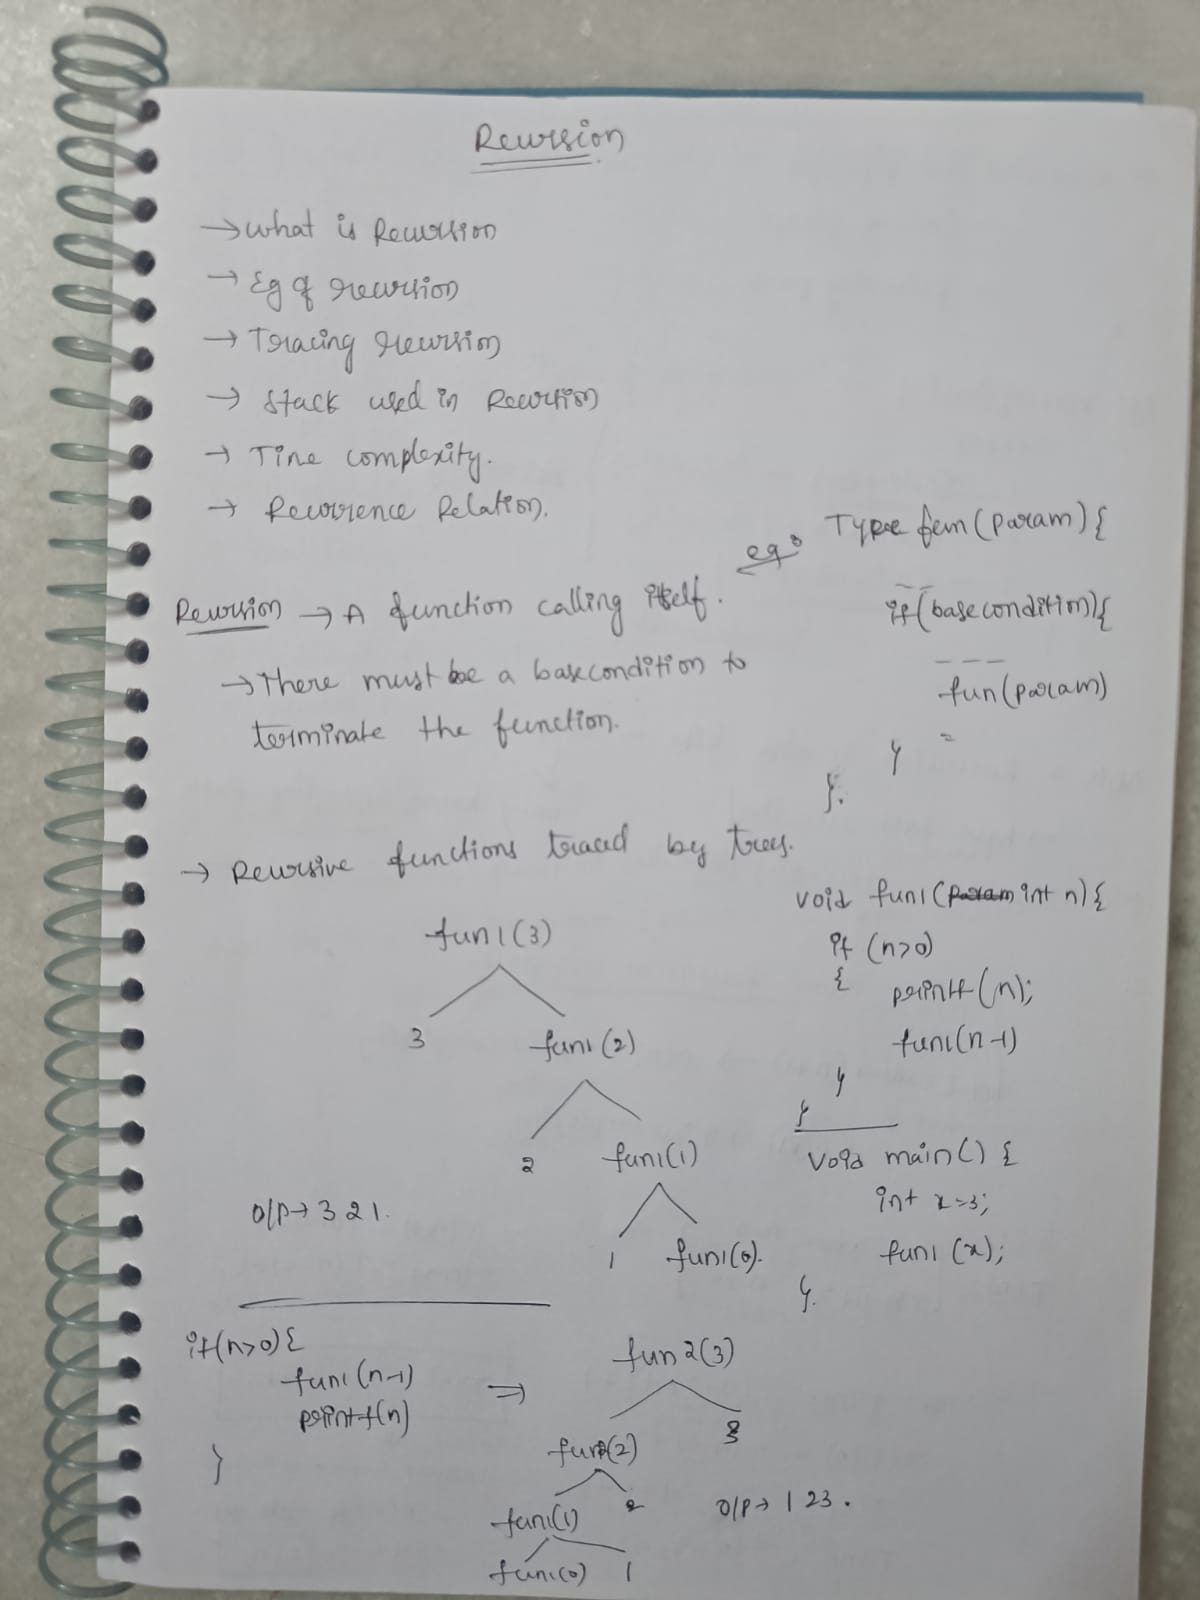 Recursion
→ What is Recursion
→ Eg of recursion
→ Tracing recursion
→ Stack used in Recursion
→ Time complexity.
→ Recurrence Relation.
Recursion → A function calling itself.
→ There must be a basecondition to
terminate the function.
eg:
Type fun(param){
if(basecondition){
fun(param)
}
}.
→ Recursive functions traced by trees.
fun1(3)
3 fun1(2)
2 fun1(1)
1 fun1(0).
O/P→ 3 2 1.
void fun1(param int n){
if (n>0)
{ printf(n);
fun1(n-1)
}
}
void main() {
int x=3;
fun1(x);
}.
if(n>0){
fun1(n-1)
printf(n)
}
⇒
fun2(3)
fun2(2) 3
fun1(1) 2
fun1(0) 1
O/P→ 1 2 3.